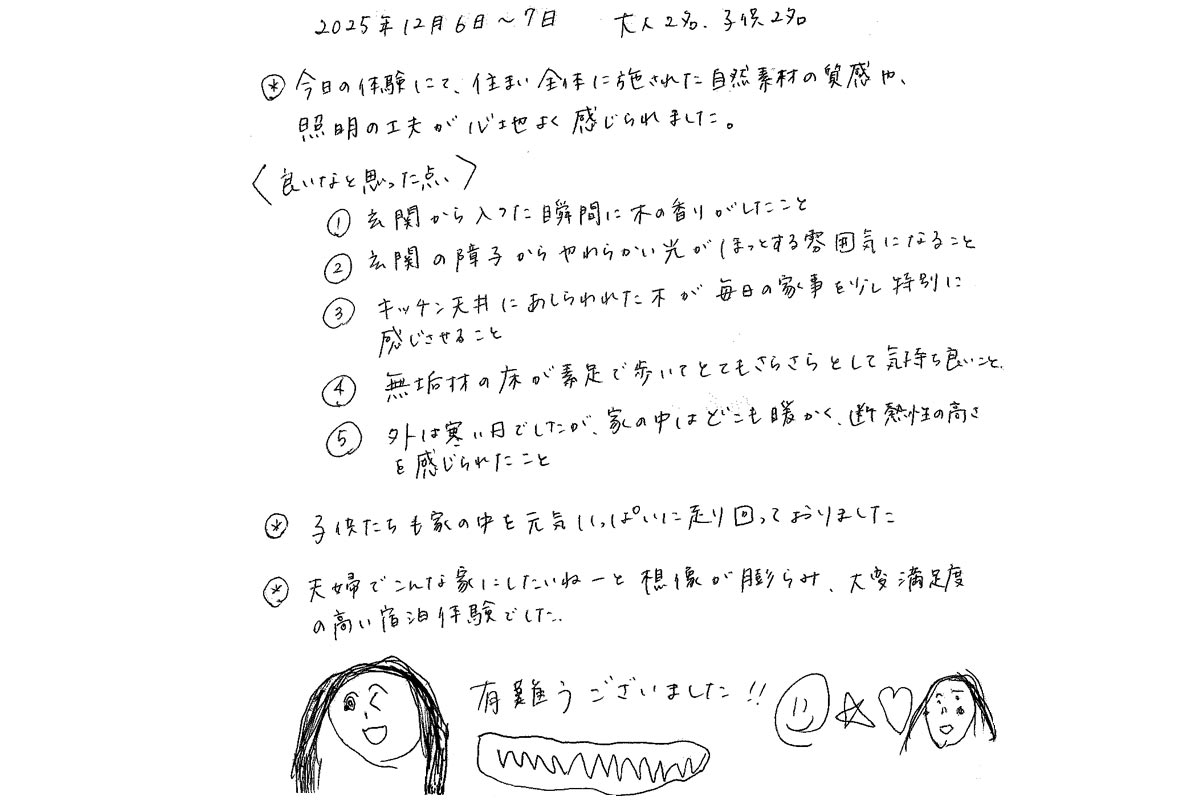 2025年12月6日～7日　大人2名、子供2名
＊今日の体験にて、住まい全体に施された自然素材の質感や、
照明の工夫が心地よく感じられました。
〈良いなと思った点〉
① 玄関から入った瞬間に木の香りがしたこと
② 玄関の障子からやわらかい光がほっとする雰囲気になること
③ キッチン天井にあしらわれた木が毎日の家事を少し特別に
感じさせること
④ 無垢材の床が素足で歩いてとてもさらさらとして気持ち良いこと、
⑤ 外は寒い日でしたが、家の中はどこも暖かく、断熱性の高さ
を感じられたこと
＊子供たちも家の中を元気いっぱいに走り回っておりました
＊夫婦でこんな家にしたいねーと想像が膨らみ、大変満足度
の高い宿泊体験でした。
有難うございました!!